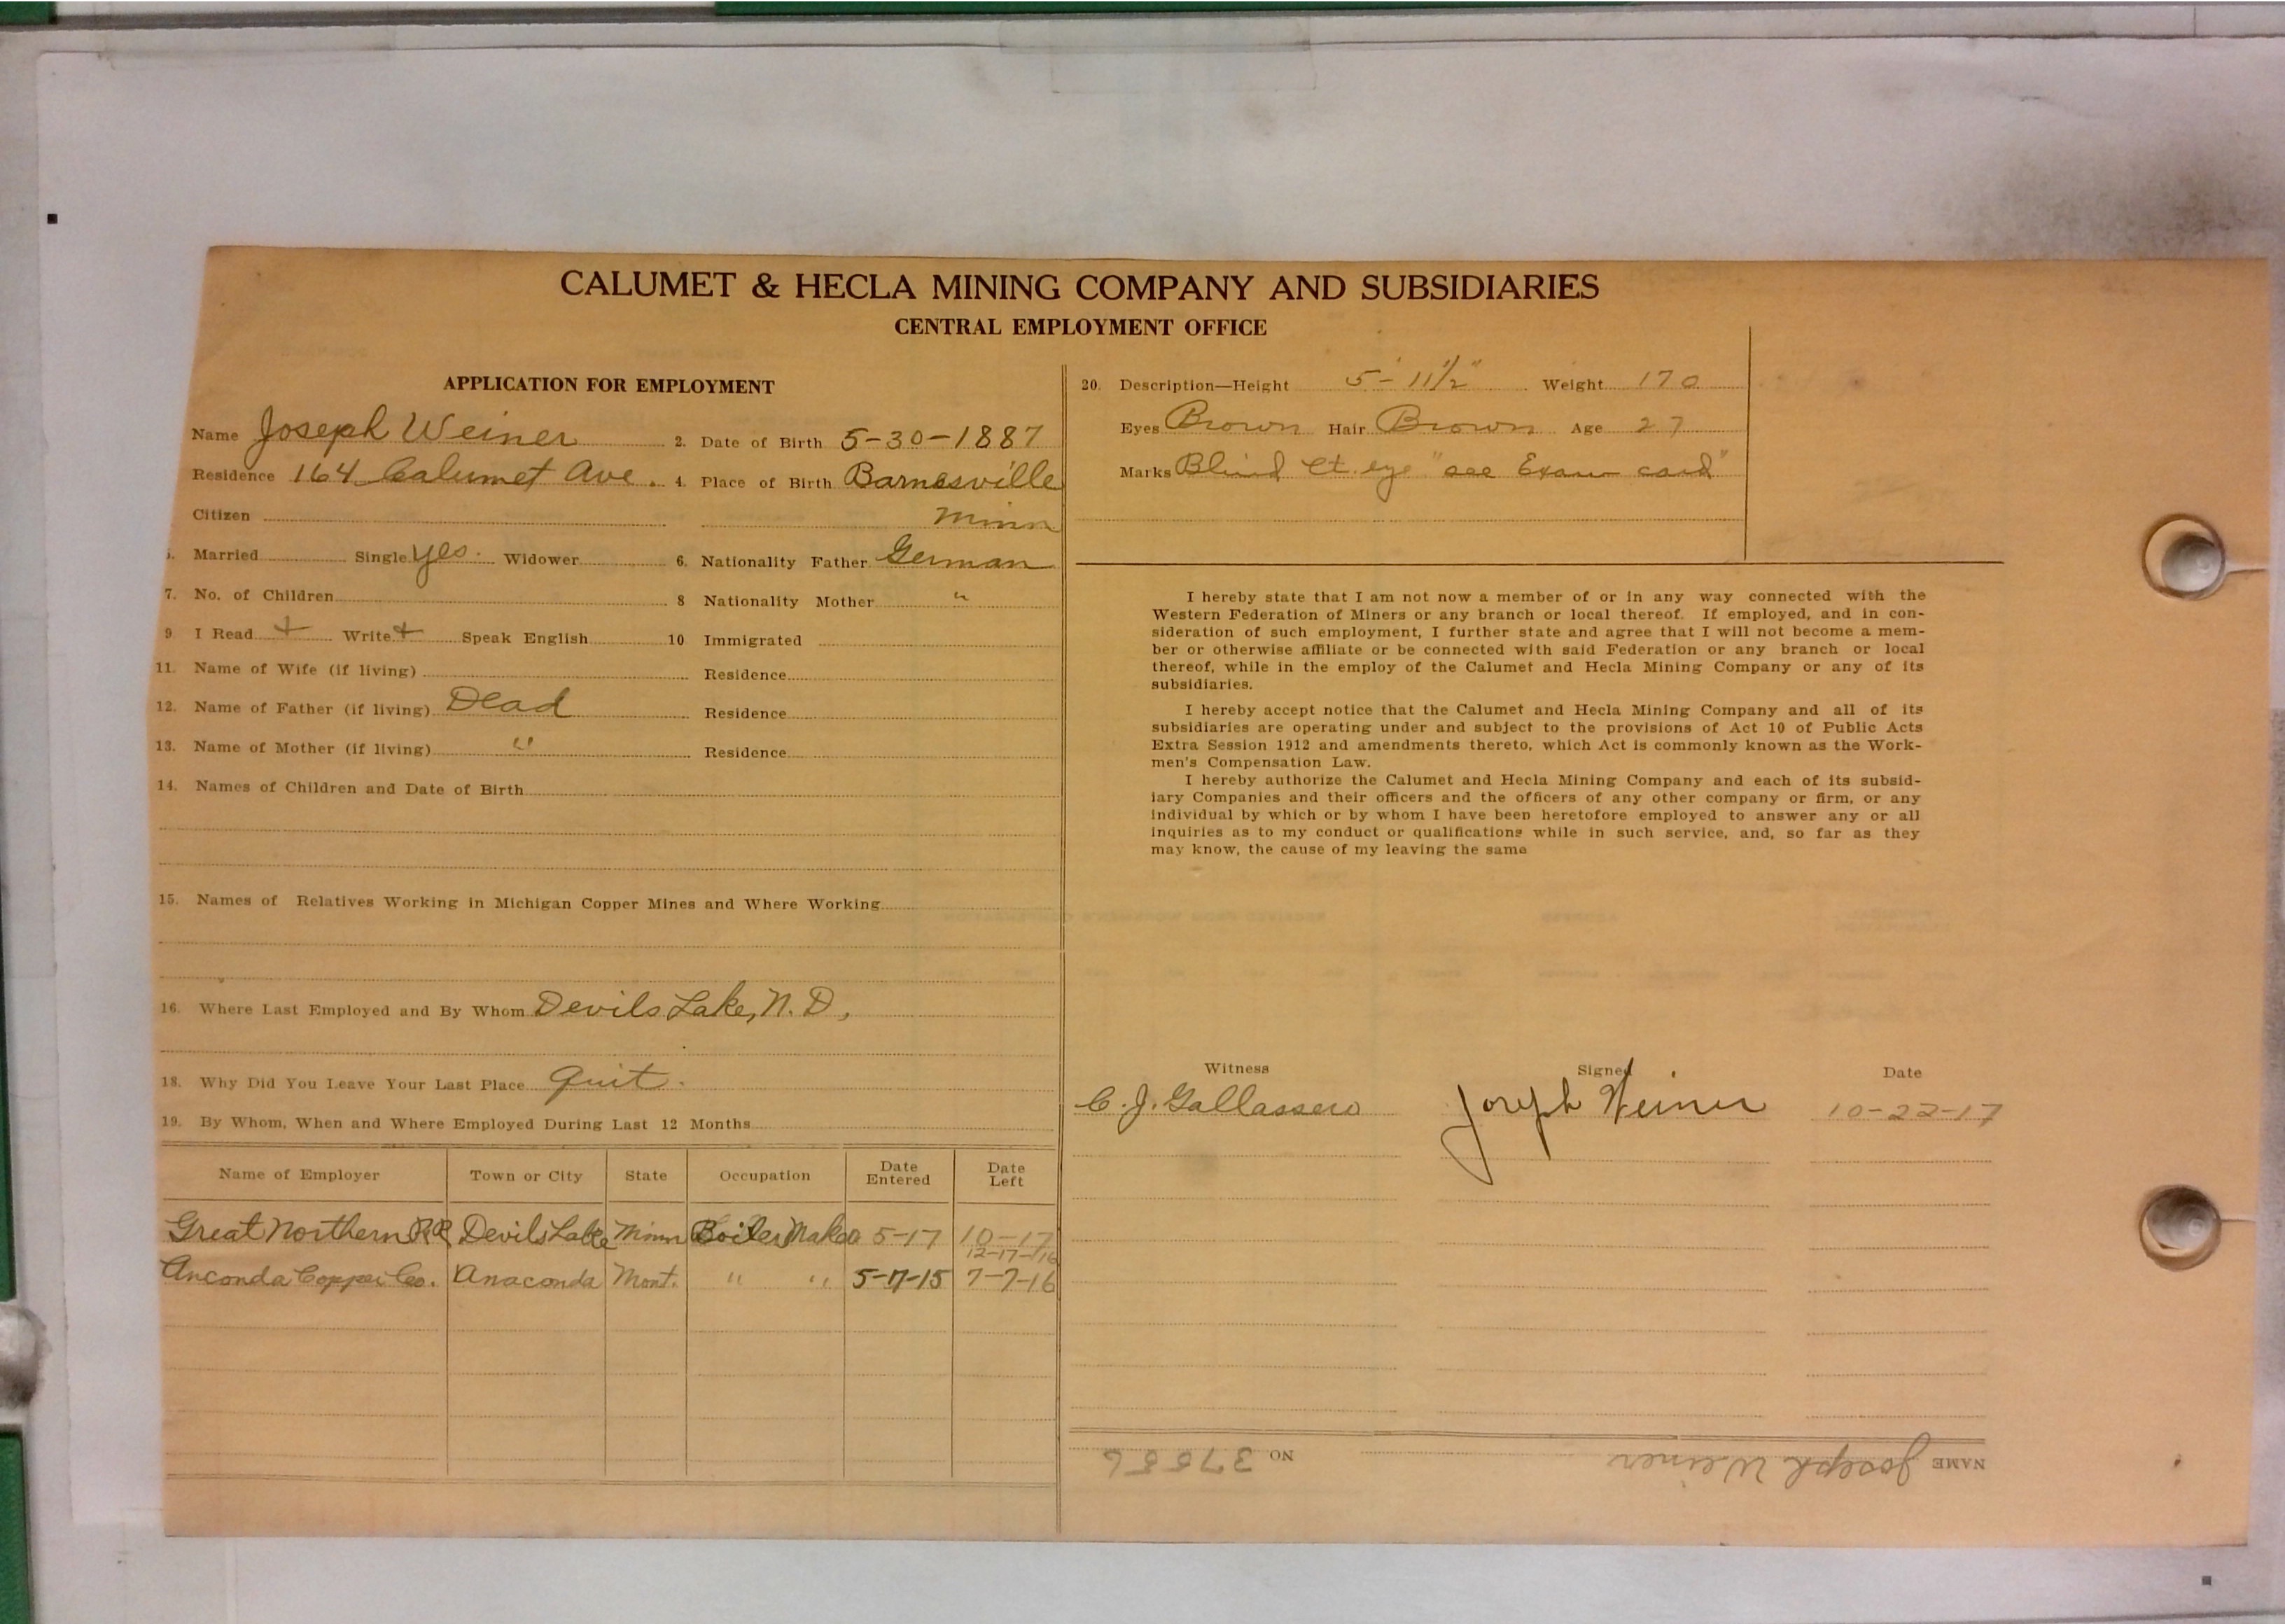 CALUMET & HECLA MINING COMPANY AND SUBSIDIARIES
CENTRAL EMPLOYMENT OFFICE
APPLICATION FOR EMPLOYMENT
Name Joseph Weiner 2. Date of Birth 5-30-1887
Residence 164 Calumet Ave. 4. Place of Birth Barnesville
Citizen Minn
5. Married Single yes. Widower 6. Nationality Father German
7. No. of Children 8 Nationality Mother "
9 I Read + Write + Speak English 10 Immigrated
11. Name of Wife (if living) Residence
12. Name of Father (if living) Dead Residence
13. Name of Mother (if living) " Residence
14. Names of Children and Date of Birth
15. Names of Relatives Working in Michigan Copper Mines and Where Working
16. Where Last Employed and By Whom Devils Lake, N. D,
18. Why Did You Leave Your Last Place Quit.
19. By Whom, When and Where Employed During Last 12 Months
Name of Employer Town or City State Occupation Date Entered Date Left
Great Northern RR Devils Lake Minn Boiler Maker 5-17 10-17
12-17-16
Anconda Copper Co. Anaconda Mont. " " 5-7-15 7-7-16
20. Description—Height 5'- 11 1/2" Weight 170
Eyes Brown Hair Brown Age 27
Marks Blind eye "see Exam card"
I hereby state that I am not now a member of or in any way connected with the
Western Federation of Miners or any branch or local thereof. If employed, and in con-
sideration of such employment, I further state and agree that I will not become a mem-
ber or otherwise affiliate or be connected with said Federation or any branch or local
thereof, while in the employ of the Calumet and Hecla Mining Company or any of its
subsidiaries.
I hereby accept notice that the Calumet and Hecla Mining Company and all of its
subsidiaries are operating under and subject to the provisions of Act 10 of Public Acts
Extra Session 1912 and amendments thereto, which Act is commonly known as the Work-
men's Compensation Law.
I hereby authorize the Calumet and Hecla Mining Company and each of its subsid-
iary Companies and their officers and the officers of any other company or firm, or any
individual by which or by whom I have been heretofore employed to answer any or all
inquiries as to my conduct or qualifications while in such service, and, so far as they
may know, the cause of my leaving the same
Witness Signed Date
C. J. Joseph Weiner 10-22-17
NAME Joseph Weiner NO